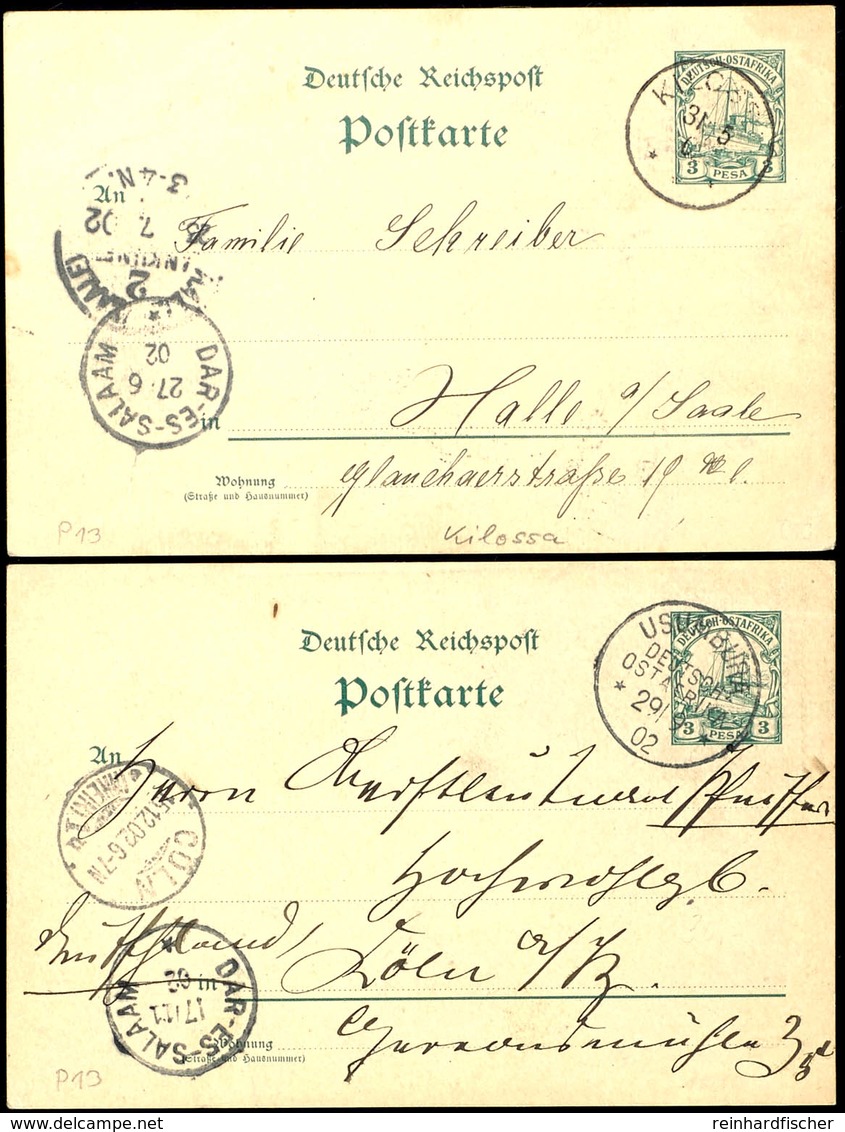 Deutsche Reichspost
Postkarte
DEUTSCH-OSTAFRIKA
3 PESA 3
31 5
An
3-4 N.
7. 02
2
Familie Schreiber
DAR-ES-SALAAM
27.6
02
in
Halle a/Saale
Wohnung
(Straße und Hausnummer)
Glauchaerstraße 19
P13
Kilossa
Deutsche Reichspost
Postkarte
DEUTSCH-OSTAFRIKA
3 PESA 3
DEUTSCH-
OSTAFRIKA
29/9
02
An
Herrn Oberstleutnant Pfeiffer
CÖLN
12.02.6-7N
Hochwohlgb.
Deutschland
Cöln a/R.
DAR-ES-SALAAM
17/11
02
in
Wohnung
(Straße und Hausnummer)
Gereonsmühle 3
P13
reinhardfischer